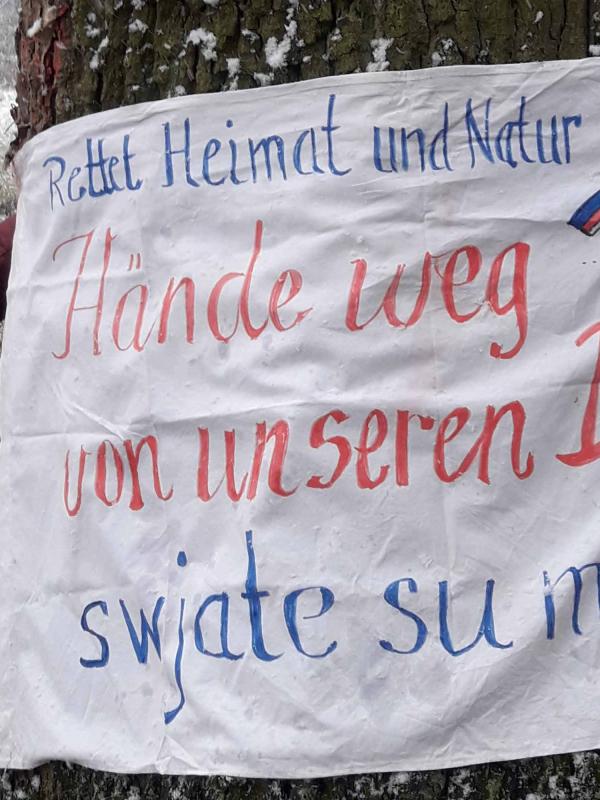 Rettet Heimat und Natur
Hände weg
von unseren
swjate su